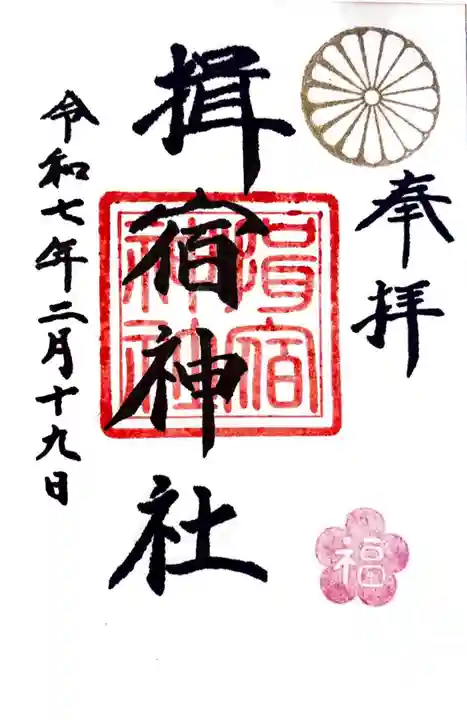 奉拝
揖宿神社
揖宿
神社
令和七年二月十九日
福